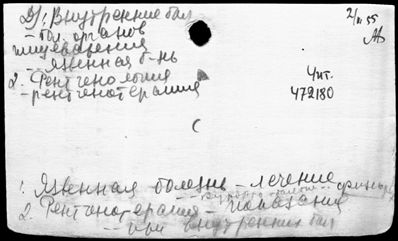 2/V 55
Д/: Внутренние бол.
- бол. органов
пищеварения
-- язвенная б-нь
2. Рентгенология
- рентгенотерапия
Чит.
472180
1. Язвенная болезнь - лечение
2. Рентгенотерапия - показания
-- при внутренних бол